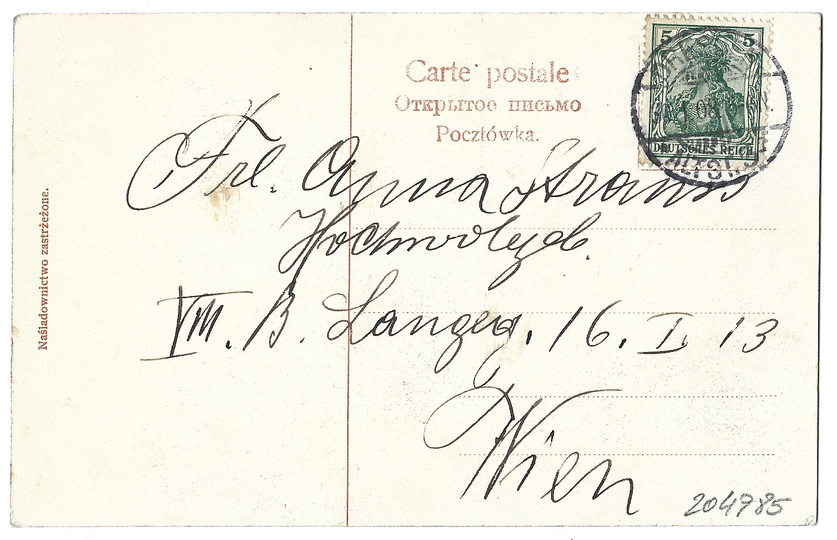 Carte postale
Открытое письмо
Pocztówka.
5 5
DEUTSCHES REICH
Frl. Anna Strauss
Hochwohlgeb.
VIII. B. Langeg. 16. I. 13
Wien
Naśladownictwo zastrzeżone.
204785